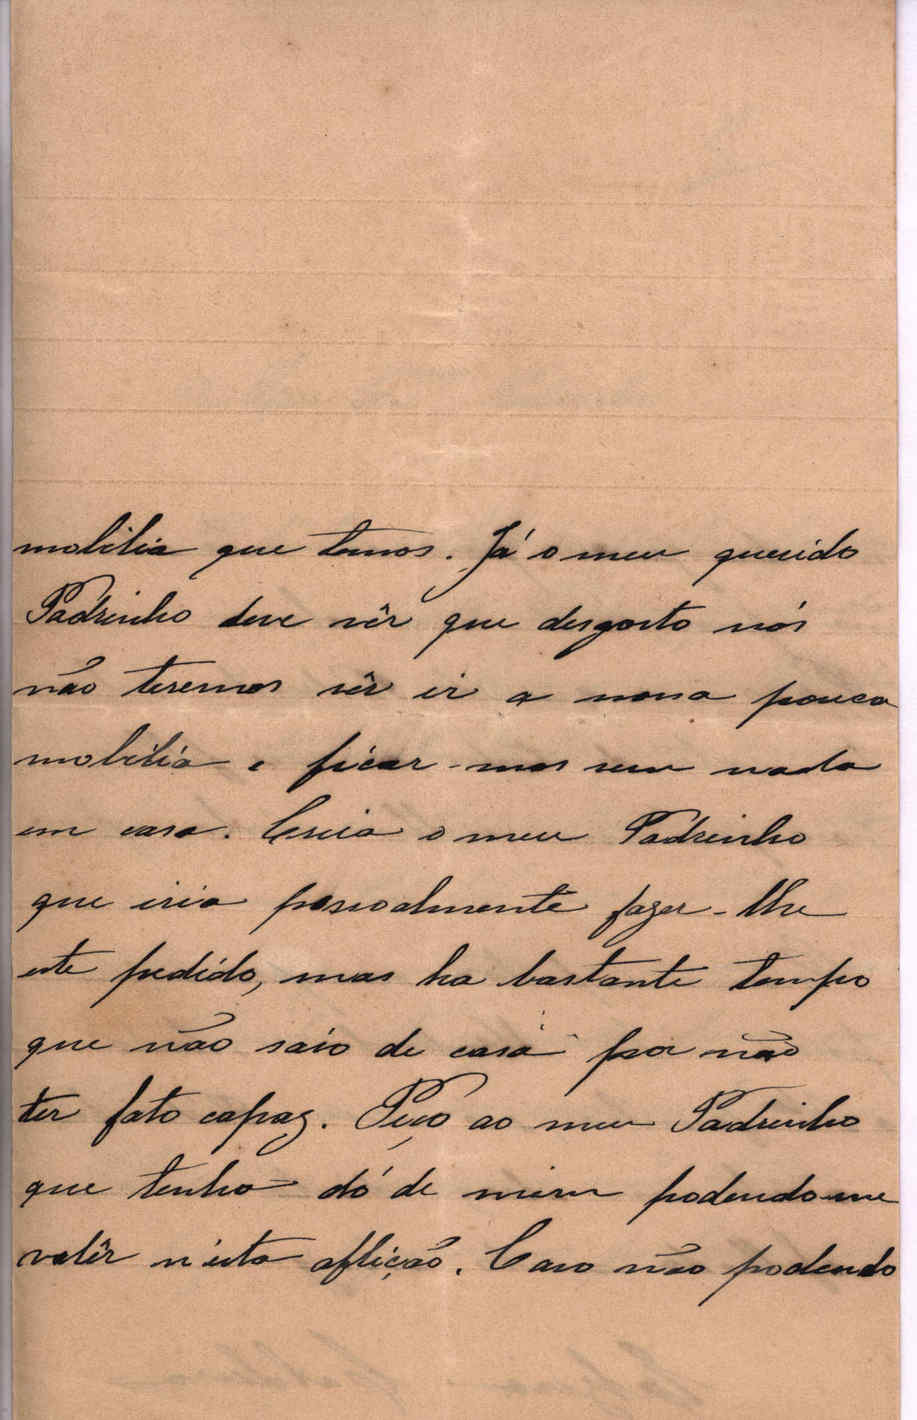 mobilia que temos. Já o meu querido
Padrinho deve vêr que desgosto nós
não teremos vêr ir a nossa pouca
mobilia e ficar-mos sem nada
em casa. Creia o meu Padrinho
que iria pessoalmente fazer-lhe
este pedido, mas ha bastante tempo
que não saio de casa por não
ter fato capaz. Peço ao meu Padrinho
que tenha dó de mim podendo-me
valêr n'esta aflição. Caso não podendo